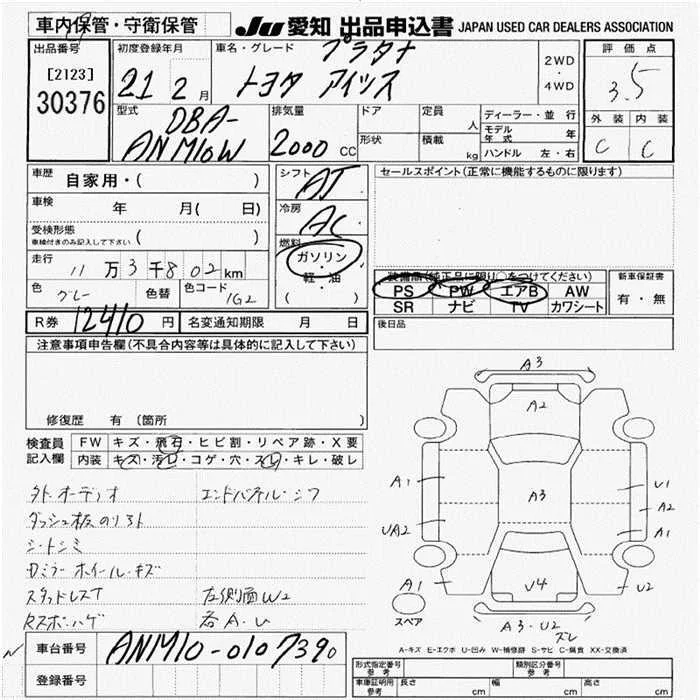 車内保管・守衛保管
JU 愛知 出品申込書 JAPAN USED CAR DEALERS ASSOCIATION
出品番号
[2123]
30376
初度登録年月
21 2月
車名・グレード
プラタナ
トヨタ アイシス
2WD
・
4WD
評価点
3.5
外装 内装
C C
型式
DBA-
ANM10W
排気量
2000 CC
ドア
形状
定員 人
積載 kg
ディーラー・並行
モデル年式 年
ハンドル 左・右
車歴 自家用・( )
車検 年 月( 日)
受検形態
車検付きのみ記入して下さい ( )
走行 11万3千802km
色 グレー 色替 色コード 1G2
シフト AT
冷房 AC
燃料
ガソリン
軽・油
( )
セールスポイント(正常に機能するものに限ります)
装備品(純正品に限り○をつけてください)
PS PW エアB AW
SR ナビ TV カワシート
新車保証書
有・無
R券 12410円 名変通知期限 月 日
後日品
注意事項申告欄(不具合内容等は具体的に記入して下さい)
修復歴 有 (箇所 )
検査員記入欄
FW キズ・飛石・ヒビ割・リペア跡・X要
内装 キズ・汚レ・コゲ・穴・スレ・キレ・破レ
外オーディオ エンドパネル・シワ
ダッシュ板のり外
シートシミ
Dミラー ホイール・キズ
スタッドレスT 左側面W2
各A・U
A3
A2
A1
A3
U1
A2
UA2
A1
A1
U4
U2
A3・U2
ズレ
スペア
A-キズ E-エクボ U-凹み W-補修跡 S-サビ C-腐食 XX-交換済
車台番号 ANM10-0107390
登録番号
形式指定番号
参考
類別区分番号
参考
車庫証明用
参考
長さ cm 幅 cm 高さ cm